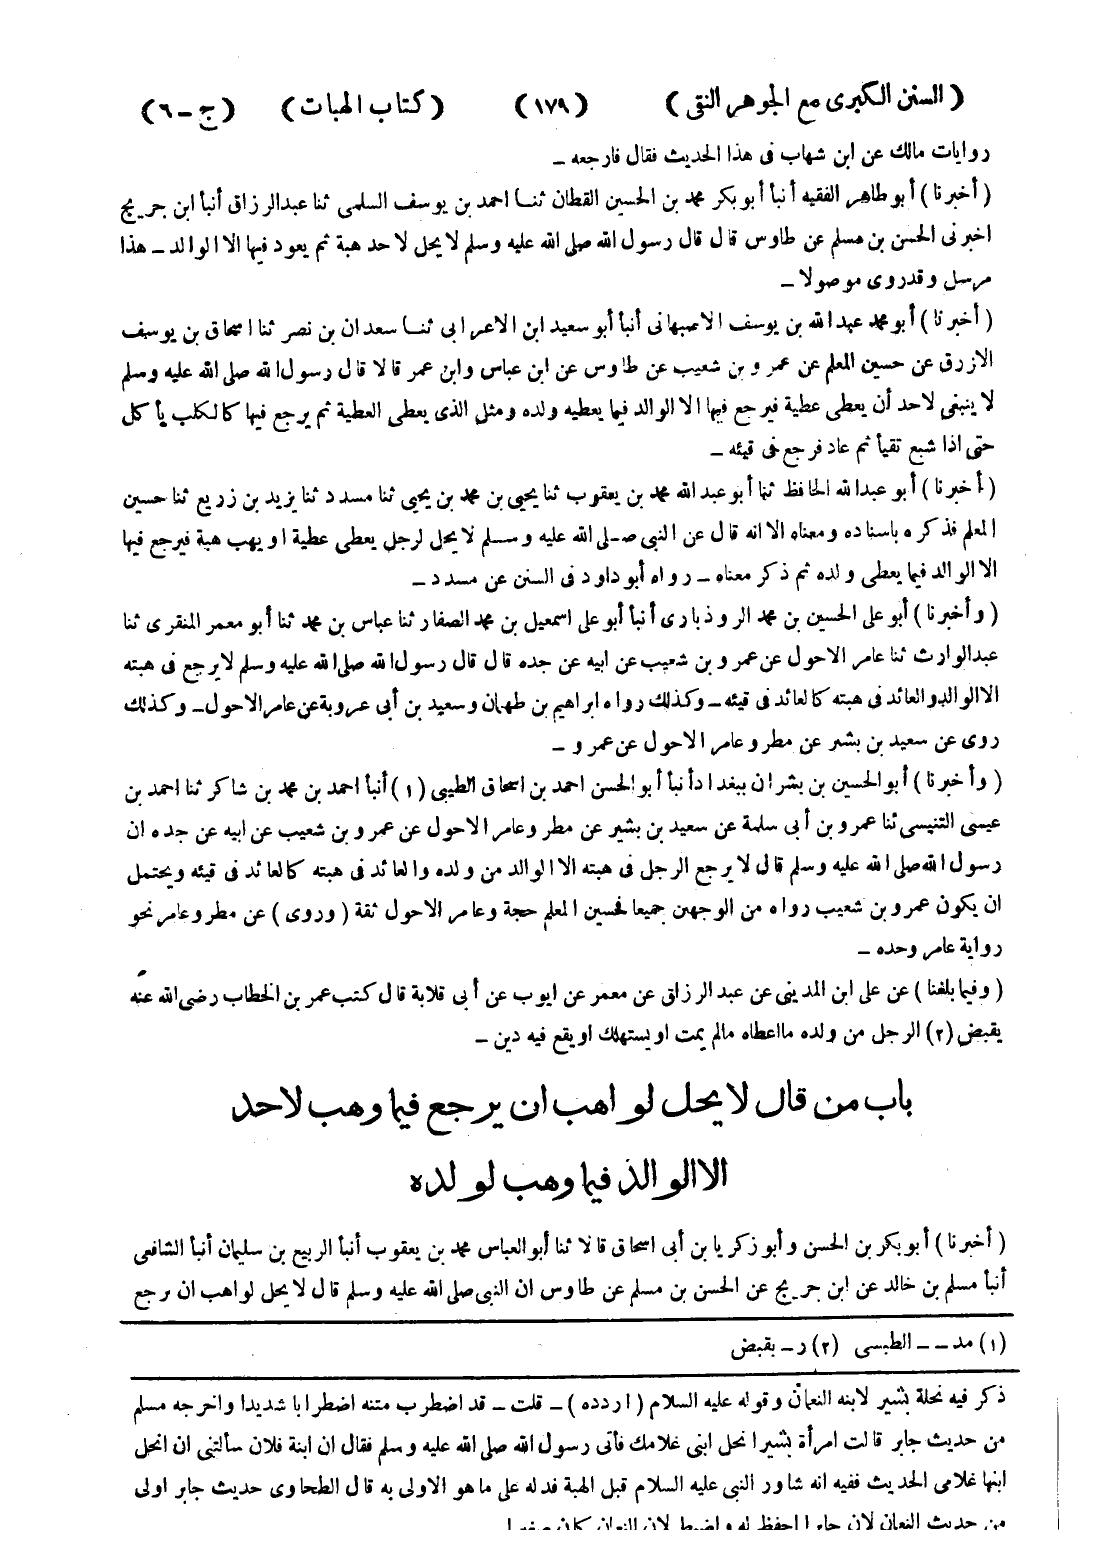 (السنن الكبرى مع الجوهر النقى) (١٧٩) (كتاب الهبات) (ج-٦)
روايات مالك عن ابن شهاب فى هذا الحديث فقال فارجعه -
(أخبرنا) أبو طاهر الفقيه أنبأ أبو بكر محمد بن الحسين القطان ثنا احمد بن يوسف السلمى ثنا عبدالرزاق أنبأ ابن جريج
اخبرنى الحسن بن مسلم عن طاوس قال قال رسول الله صلى الله عليه وسلم لا يحل لاحد هبة ثم يعود فيها الا الوالد - هذا
مرسل وقدروى موصولا -
(أخبرنا) أبو محمد عبد الله بن يوسف الاصبهانى أنبأ أبو سعيد ابن الاعرابى ثنا سعدان بن نصر ثنا اسحاق بن يوسف
الازرق عن حسين المعلم عن عمرو بن شعيب عن طاوس عن ابن عباس وابن عمر قالا قال رسول الله صلى الله عليه وسلم
لا ينبغى لاحد أن يعطى عطية فيرجع فيها الا الوالد فيما يعطيه ولده ومثل الذى يعطى العطية ثم يرجع فيها كالكلب يأكل
حتى اذا شبع تقيأ ثم عاد فرجع فى قيئه -
(أخبرنا) أبو عبدالله الحافظ ثنا أبو عبد الله محمد بن يعقوب ثنا يحيى بن محمد بن يحيى ثنا مسدد ثنا يزيد بن زريع ثنا حسين
المعلم فذكره باسناده ومعناه الا انه قال عن النبى صلى الله عليه وسلم لا يحل لرجل يعطى عطية او يهب هبة فيرجع فيها
الا الوالد فيما يعطى ولده ثم ذكر معناه - رواه أبو داود فى السنن عن مسدد -
(وأخبرنا) أبو على الحسين بن محمد الروذبارى أنبأ أبو على اسمعيل بن محمد الصفار ثنا عباس بن محمد ثنا أبو معمر المنقرى ثنا
عبدالوارث ثنا عامر الاحول عن عمرو بن شعيب عن ابيه عن جده قال قال رسول الله صلى الله عليه وسلم لا يرجع فى هبته
الا الوالد والعائد فى هبته كالعائد فى قيئه - وكذلك رواه ابراهيم بن طهمان وسعيد بن أبى عروبة عن عامر الاحول - وكذلك
روى عن سعيد بن بشير عن مطر وعامر الاحول عن عمرو -
(وأخبرنا) أبو الحسين بن بشران ببغداد أنبأ أبو الحسن احمد بن اسحاق الطيبى (١) أنبأ احمد بن محمد بن شاكر ثنا احمد بن
عيسى التنيسى ثنا عمرو بن أبى سلمة عن سعيد بن بشير عن مطر وعامر الاحول عن عمرو بن شعيب عن ابيه عن جده ان
رسول الله صلى الله عليه وسلم قال لا يرجع الرجل فى هبته الا الوالد من ولده والعائد فى هبته كالعائد فى قيئه ويحتمل
ان يكون عمرو بن شعيب رواه من الوجهين جميعا فحسين المعلم حجة وعامر الاحول ثقة (وروى) عن مطر وعامر نحو
رواية عامر وحده -
(وفيما بلغنا) عن على ابن المدينى عن عبد الرزاق عن معمر عن ايوب عن أبى قلابة قال كتب عمر بن الخطاب رضى الله عنه
يقبض (٢) الرجل من ولده ما اعطاه مالم يمت او يستهلك او يقع فيه دين -
باب من قال لا يحل لواهب ان يرجع فيما وهب لاحد
الا الوالد فيما وهب لولده
(أخبرنا) أبو بكر بن الحسن وأبو زكريا بن أبى اسحاق قالا ثنا أبو العباس محمد بن يعقوب أنبأ الربيع بن سليمان أنبأ الشافعى
أنبأ مسلم بن خالد عن ابن جريج عن الحسن بن مسلم عن طاوس ان النبى صلى الله عليه وسلم قال لا يحل لواهب ان يرجع
(١) مد - - الطبسى (٢) ر - بقبض
ذكر فيه نحلة بشير لابنه النعمان وقوله عليه السلام (اردده) - قلت - قد اضطرب متنه اضطرابا شديدا واخرجه مسلم
من حديث جابر قالت امرأة بشير انحل ابنى غلامك فأتى رسول الله صلى الله عليه وسلم فقال ان ابنة فلان سألتنى ان انحل
ابنها غلامى الحديث ففيه انه شاور النبى عليه السلام قبل الهبة فدله على ما هو الاولى به قال الطحاوى حديث جابر اولى
من حديث النعمان لان جابرا احفظ له واضبط لان النعمان كان صغيرا